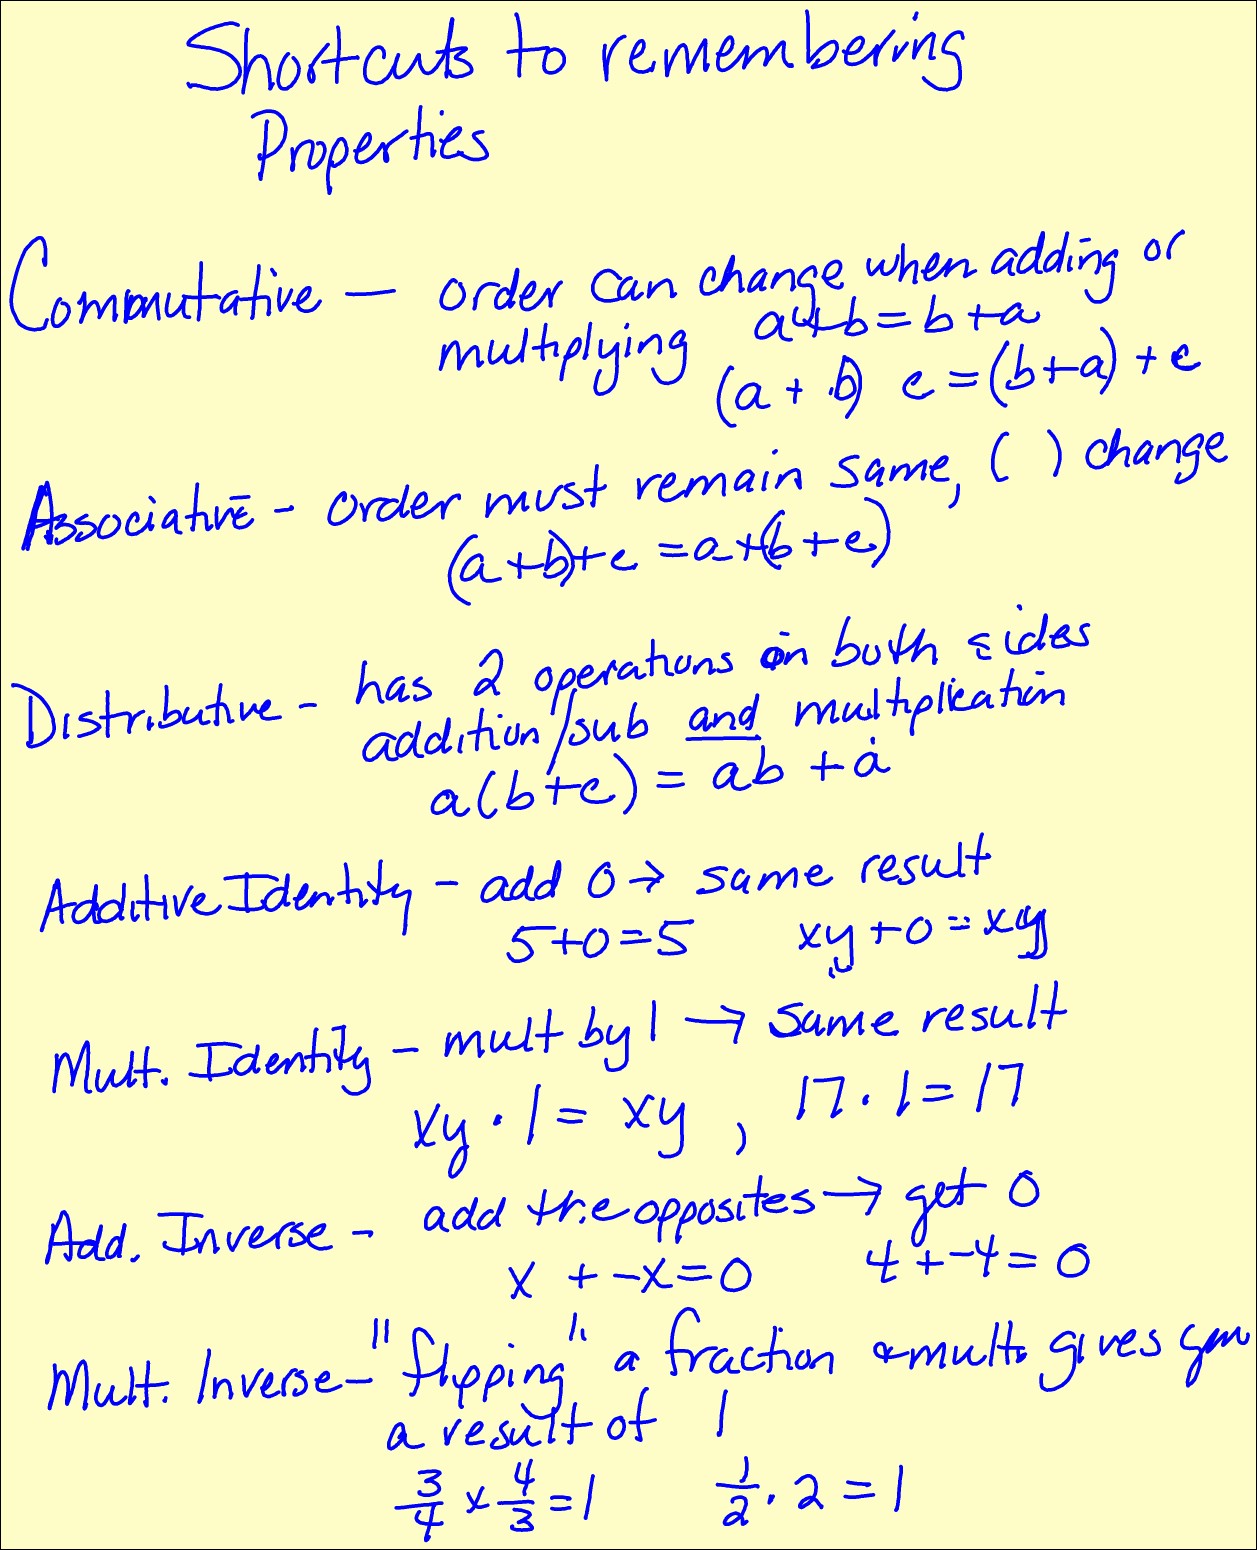 Shortcuts to remembering
Properties
Commutative — order can change when adding or
multiplying a+b=b+a
(a + b) c =(b+a) + c
Associative - order must remain same, ( ) change
(a+b)+c =a+(b+c)
Distributive - has 2 operations on both sides
addition/sub and multiplication
a(b+c) = ab + a
Additive Identity - add 0 → same result
5+0=5 xy+0=xy
Mult. Identity - mult by 1 → same result
xy · 1 = xy , 17 · 1 = 17
Add. Inverse - add the opposites → get 0
x + -x=0 4+-4=0
Mult. Inverse - "flipping" a fraction & mult. gives you
a result of 1
3/4 x 4/3 = 1 1/2 · 2 = 1